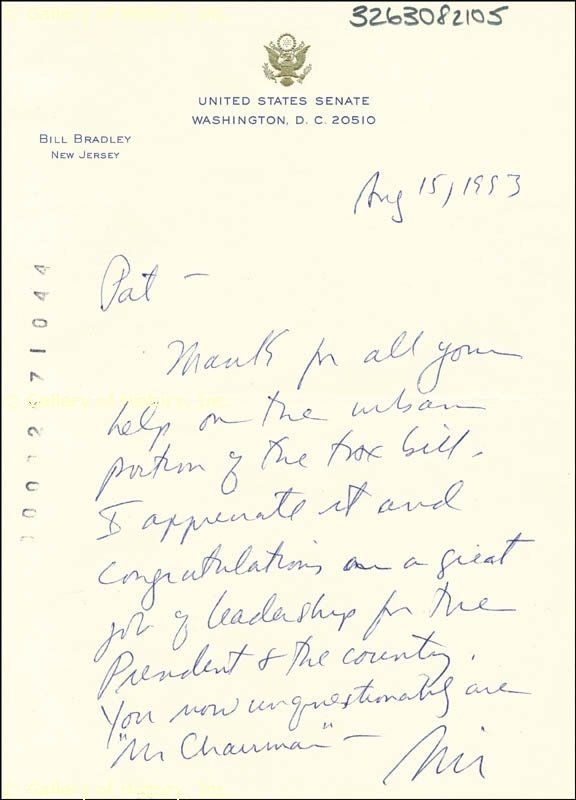 © Gallery of History, Inc.
3263082105
UNITED STATES SENATE
WASHINGTON, D. C. 20510
BILL BRADLEY
NEW JERSEY
Aug 15, 1993
Pat —
Thanks for all your
© Gallery of History, Inc.
help on the urban
portion of the tax bill.
I appreciate it and
congratulations on a great
job of leadership for the
President & the country.
You now unquestionably are
"Mr Chairman" —
Bill
© Gallery of History, Inc.